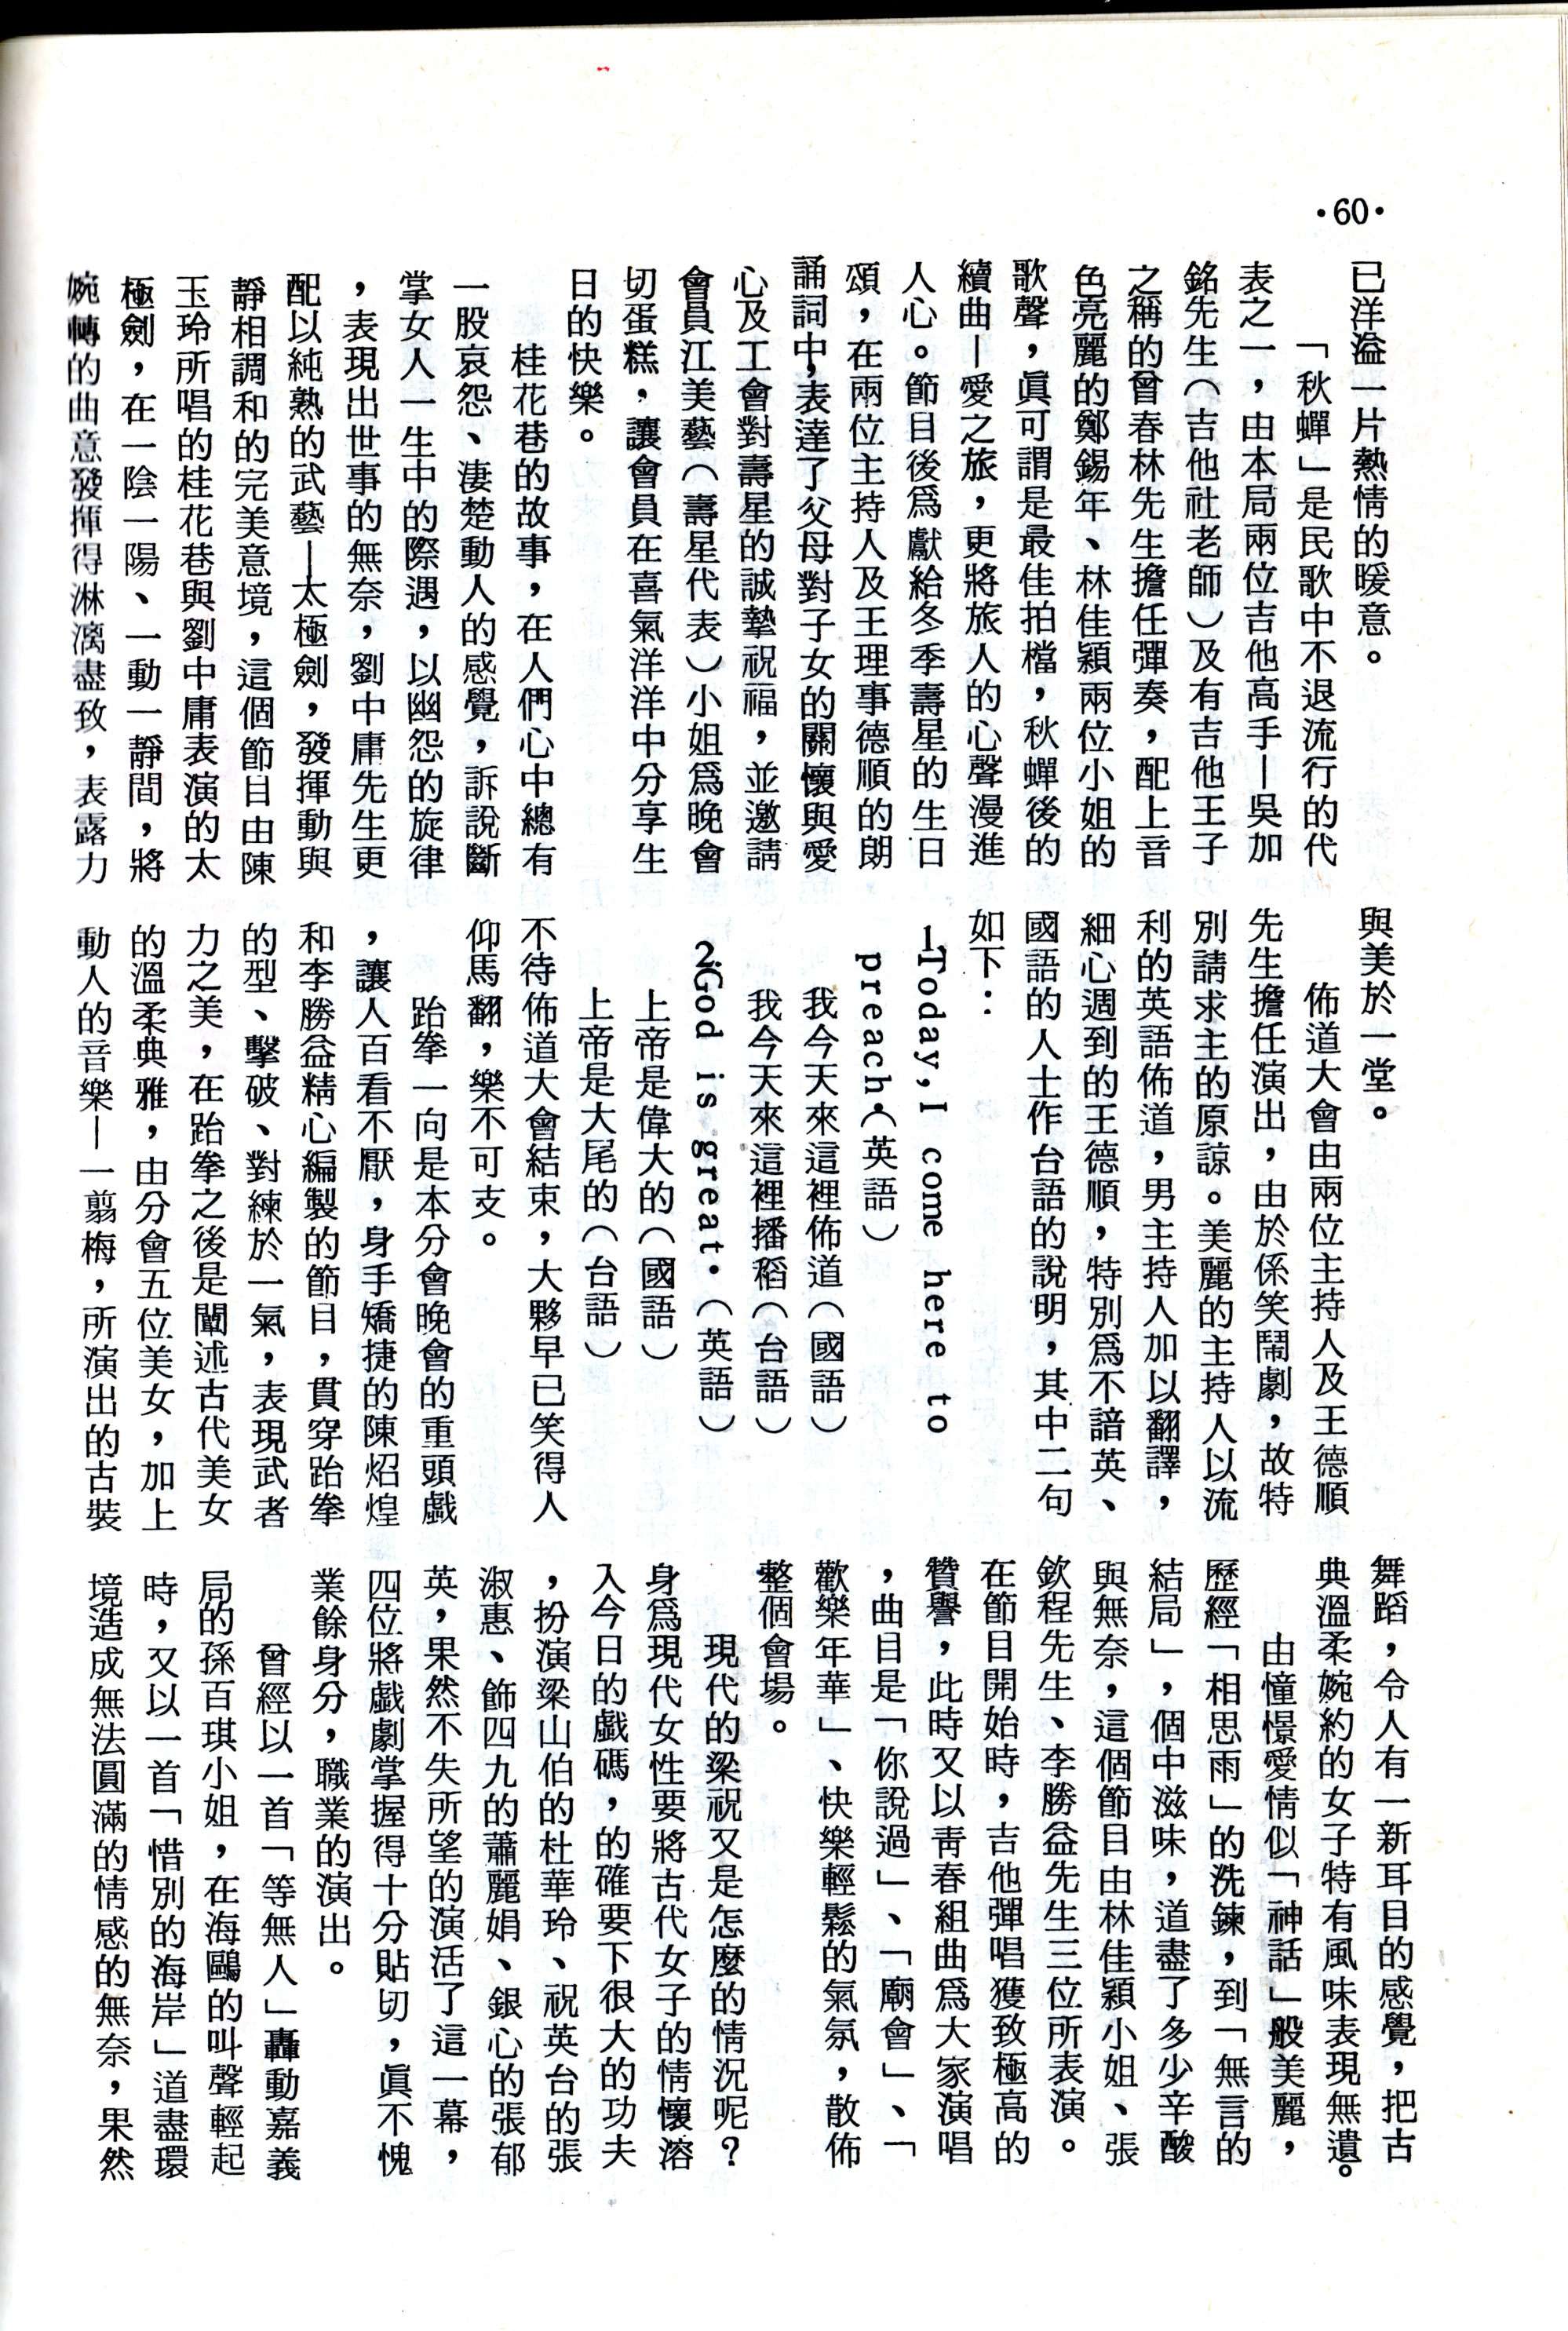 ·60·
已洋溢一片熱情的暖意。
「秋蟬」是民歌中不退流行的代
表之一，由本局兩位吉他高手—吳加
銘先生（吉他社老師）及有吉他王子
之稱的曾春林先生擔任彈奏，配上音
色亮麗的鄭錫年、林佳穎兩位小姐的
歌聲，眞可謂是最佳拍檔，秋蟬後的
續曲—愛之旅，更將旅人的心聲漫進
人心。節目後爲獻給冬季壽星的生日
頌，在兩位主持人及王理事德順的朗
誦詞中，表達了父母對子女的關懷與愛
心及工會對壽星的誠摯祝福，並邀請
會員江美藝（壽星代表）小姐爲晚會
切蛋糕，讓會員在喜氣洋洋中分享生
日的快樂。
桂花巷的故事，在人們心中總有
一股哀怨、淒楚動人的感覺，訴說斷
掌女人一生中的際遇，以幽怨的旋律
，表現出世事的無奈，劉中庸先生更
配以純熟的武藝—太極劍，發揮動與
靜相調和的完美意境，這個節目由陳
玉玲所唱的桂花巷與劉中庸表演的太
極劍，在一陰一陽、一動一靜間，將
婉轉的曲意發揮得淋漓盡致，表露力
與美於一堂。
佈道大會由兩位主持人及王德順
先生擔任演出，由於係笑鬧劇，故特
別請求主的原諒。美麗的主持人以流
利的英語佈道，男主持人加以翻譯，
細心週到的王德順，特別爲不諳英、
國語的人士作台語的說明，其中二句
如下：
1.Today,I come here to
preach.（英語）
我今天來這裡佈道（國語）
我今天來這裡播稻（台語）
2.God is great.（英語）
上帝是偉大的（國語）
上帝是大尾的（台語）
不待佈道大會結束，大夥早已笑得人
仰馬翻，樂不可支。
跆拳一向是本分會晚會的重頭戲
，讓人百看不厭，身手矯捷的陳炤煌
和李勝益精心編製的節目，貫穿跆拳
的型、擊破、對練於一氣，表現武者
力之美，在跆拳之後是闡述古代美女
的溫柔典雅，由分會五位美女，加上
動人的音樂—一翦梅，所演出的古裝
舞蹈，令人有一新耳目的感覺，把古
典溫柔婉約的女子特有風味表現無遺。
由憧憬愛情似「神話」般美麗，
歷經「相思雨」的洗鍊，到「無言的
結局」，個中滋味，道盡了多少辛酸
與無奈，這個節目由林佳穎小姐、張
欽程先生、李勝益先生三位所表演。
在節目開始時，吉他彈唱獲致極高的
贊譽，此時又以靑春組曲爲大家演唱
，曲目是「你說過」、「廟會」、「
歡樂年華」、快樂輕鬆的氣氛，散佈
整個會場。
現代的梁祝又是怎麼的情況呢？
身爲現代女性要將古代女子的情懷溶
入今日的戲碼，的確要下很大的功夫
，扮演梁山伯的杜華玲、祝英台的張
淑惠、飾四九的蕭麗娟、銀心的張郁
英，果然不失所望的演活了這一幕，
四位將戲劇掌握得十分貼切，眞不愧
業餘身分，職業的演出。
曾經以一首「等無人」轟動嘉義
局的孫百琪小姐，在海鷗的叫聲輕起
時，又以一首「惜別的海岸」道盡環
境造成無法圓滿的情感的無奈，果然